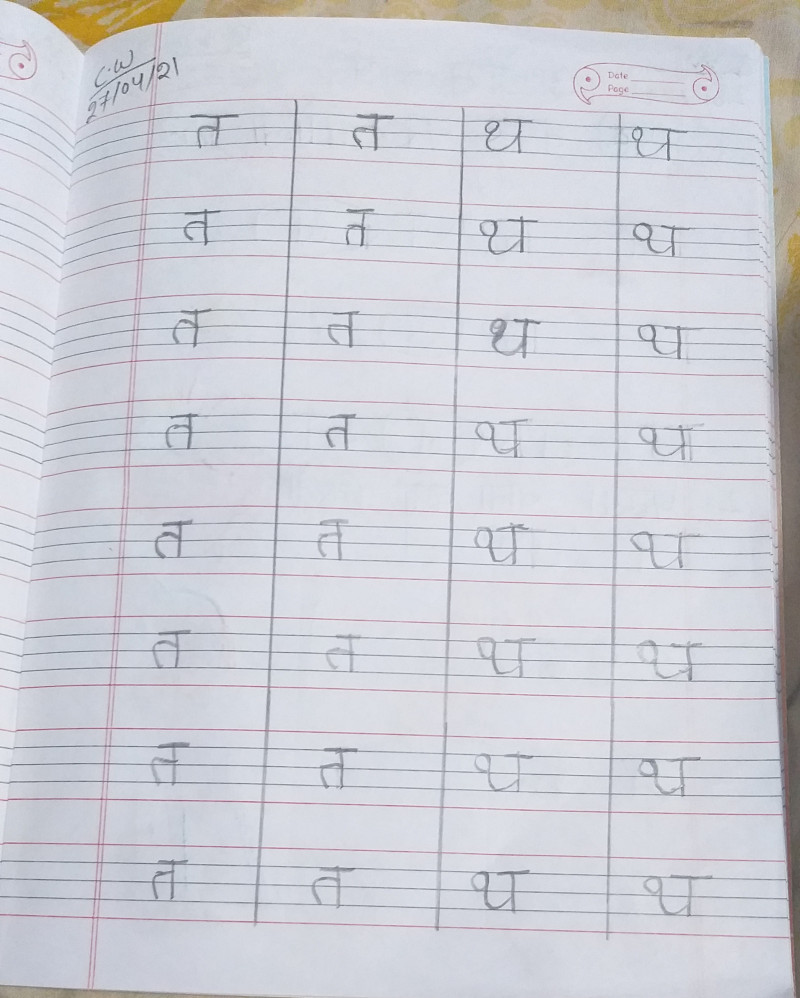 C.W
27/04/21
Date
Page
त त थ थ
त त थ थ
त त थ थ
त त थ थ
त त थ थ
त त थ थ
त त थ थ
त त थ थ